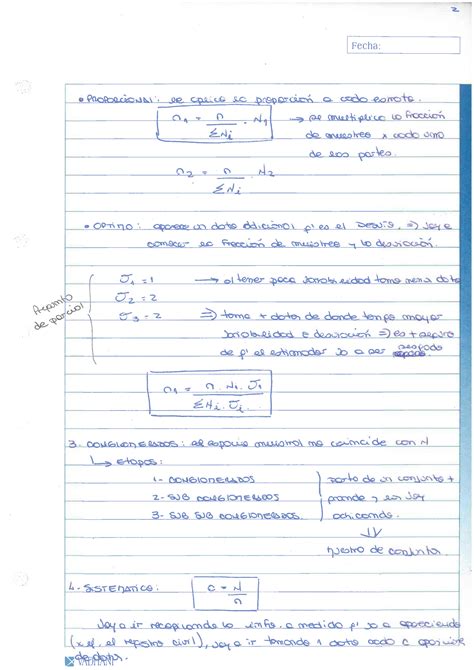 2
Fecha:
• PROPORCIONAL: se aplica la proporción a cada estrato.
n1 = n / ΣNi . N1 → se multiplica la fracción
de muestreo x cada uno
de los partes.
n2 = n / ΣNi . N2
• OPTIMO: aparece un dato adicional q' es el DESVIO. ⇒ voy a
conocer la fracción de muestreo y la desviación.
Apunto de parcial
σ1 = 1 → al tener poca variabilidad toma menos datos
σ2 = 2
σ3 = 2 ⇒ toma + datos de donde tenga mayor
variabilidad o desviación ⇒ es + seguro
de q' el estimador va a ser
n1 = n . N1 . σ1 / ΣNi . σi
3. CONGLOMERADOS: el espacio muestral no coincide con N
↳ Etapas:
1- CONGLOMERADOS
2- SUB CONGLOMERADOS
3- SUB SUB CONGLOMERADOS.
parto de un conjunto +
grande y lo voy
achicando.
⇓
muestreo de conjuntos
4. SISTEMATICO: C = N / n
Voy a ir recopilando la info. a medida q' va apareciendo
(x ej. el registro civil), voy a ir tomando 1 dato cada C
de datos.